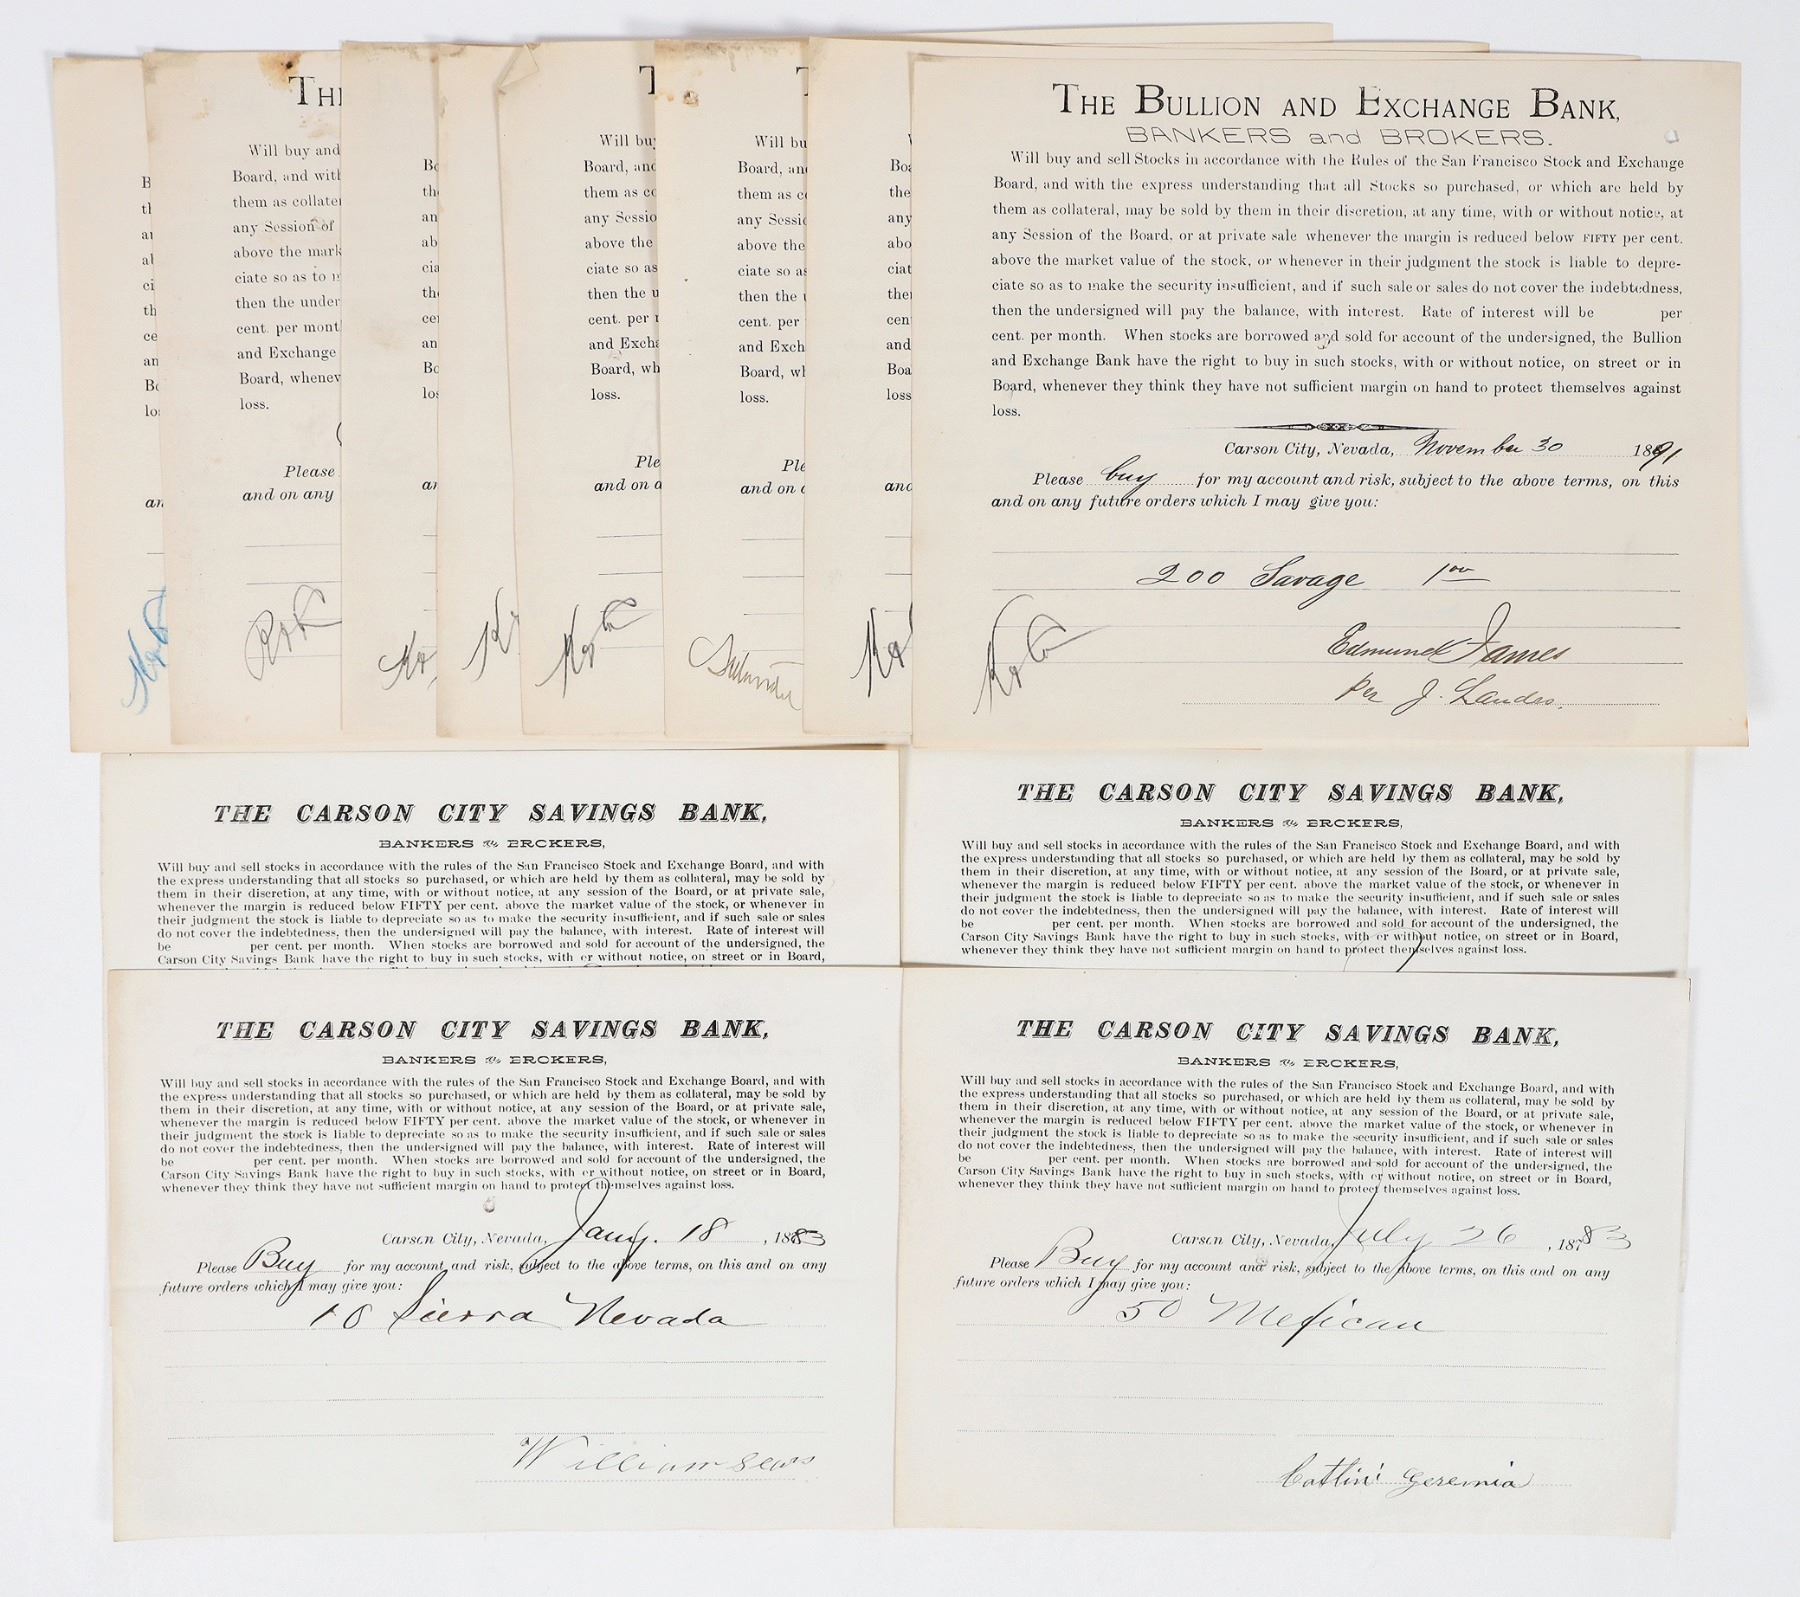 THE BULLION AND EXCHANGE BANK,
BANKERS and BROKERS.
Will buy and sell Stocks in accordance with the Rules of the San Francisco Stock and Exchange
Board, and with the express understanding that all Stocks so purchased, or which are held by
them as collateral, may be sold by them in their discretion, at any time, with or without notice, at
any Session of the Board, or at private sale whenever the margin is reduced below FIFTY per cent.
above the market value of the stock, or whenever in their judgment the stock is liable to depre-
ciate so as to make the security insufficient, and if such sale or sales do not cover the indebtedness,
then the undersigned will pay the balance, with interest. Rate of interest will be per
cent. per month. When stocks are borrowed and sold for account of the undersigned, the Bullion
and Exchange Bank have the right to buy in such stocks, with or without notice, on street or in
Board, whenever they think they have not sufficient margin on hand to protect themselves against
loss.
Carson City, Nevada, November 30 1891
Please buy for my account and risk, subject to the above terms, on this
and on any future orders which I may give you:
200 Savage 1 00
Edmund James
Per J. Landes.
THE CARSON CITY SAVINGS BANK,
BANKERS & BROKERS,
Will buy and sell stocks in accordance with the rules of the San Francisco Stock and Exchange Board, and with
the express understanding that all stocks so purchased, or which are held by them as collateral, may be sold by
them in their discretion, at any time, with or without notice, at any session of the Board, or at private sale,
whenever the margin is reduced below FIFTY per cent. above the market value of the stock, or whenever in
their judgment the stock is liable to depreciate so as to make the security insufficient, and if such sale or sales
do not cover the indebtedness, then the undersigned will pay the balance, with interest. Rate of interest will
be per cent. per month. When stocks are borrowed and sold for account of the undersigned, the
Carson City Savings Bank have the right to buy in such stocks, with or without notice, on street or in Board,
THE CARSON CITY SAVINGS BANK,
BANKERS & BROKERS,
Will buy and sell stocks in accordance with the rules of the San Francisco Stock and Exchange Board, and with
the express understanding that all stocks so purchased, or which are held by them as collateral, may be sold by
them in their discretion, at any time, with or without notice, at any session of the Board, or at private sale,
whenever the margin is reduced below FIFTY per cent. above the market value of the stock, or whenever in
their judgment the stock is liable to depreciate so as to make the security insufficient, and if such sale or sales
do not cover the indebtedness, then the undersigned will pay the balance, with interest. Rate of interest will
be per cent. per month. When stocks are borrowed and sold for account of the undersigned, the
Carson City Savings Bank have the right to buy in such stocks, with or without notice, on street or in Board,
whenever they think they have not sufficient margin on hand to protect themselves against loss.
THE CARSON CITY SAVINGS BANK,
BANKERS & BROKERS,
Will buy and sell stocks in accordance with the rules of the San Francisco Stock and Exchange Board, and with
the express understanding that all stocks so purchased, or which are held by them as collateral, may be sold by
them in their discretion, at any time, with or without notice, at any session of the Board, or at private sale,
whenever the margin is reduced below FIFTY per cent. above the market value of the stock, or whenever in
their judgment the stock is liable to depreciate so as to make the security insufficient, and if such sale or sales
do not cover the indebtedness, then the undersigned will pay the balance, with interest. Rate of interest will
be per cent. per month. When stocks are borrowed and sold for account of the undersigned, the
Carson City Savings Bank have the right to buy in such stocks, with or without notice, on street or in Board,
whenever they think they have not sufficient margin on hand to protect themselves against loss.
Carson City, Nevada, Jany. 18, 1883
Please Buy for my account and risk, subject to the above terms, on this and on any
future orders which I may give you:
10 Sierra Nevada
William Sears
THE CARSON CITY SAVINGS BANK,
BANKERS & BROKERS,
Will buy and sell stocks in accordance with the rules of the San Francisco Stock and Exchange Board, and with
the express understanding that all stocks so purchased, or which are held by them as collateral, may be sold by
them in their discretion, at any time, with or without notice, at any session of the Board, or at private sale,
whenever the margin is reduced below FIFTY per cent. above the market value of the stock, or whenever in
their judgment the stock is liable to depreciate so as to make the security insufficient, and if such sale or sales
do not cover the indebtedness, then the undersigned will pay the balance, with interest. Rate of interest will
be per cent. per month. When stocks are borrowed and sold for account of the undersigned, the
Carson City Savings Bank have the right to buy in such stocks, with or without notice, on street or in Board,
whenever they think they have not sufficient margin on hand to protect themselves against loss.
Carson City, Nevada, July 26, 1883
Please Buy for my account and risk, subject to the above terms, on this and on any
future orders which I may give you:
50 Mexican
Catlini Geremia